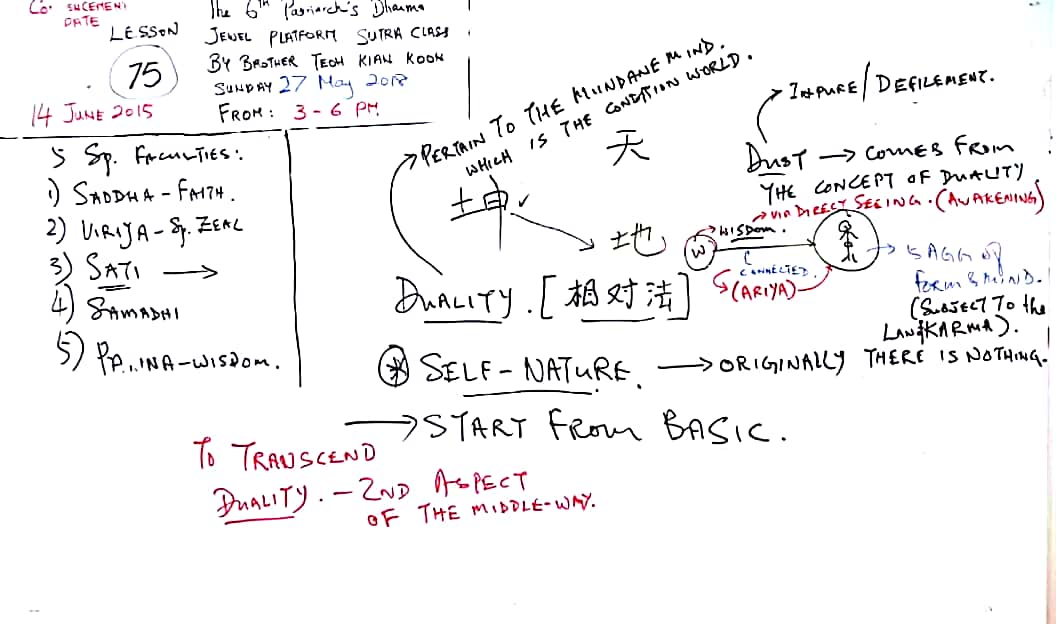 CO. SUCEMENT
DATE
14 JUNE 2015
LESSON
75
The 6th Patriarch's Dharma
JEWEL PLATFORM SUTRA CLASS
BY BROTHER TEOH KIAN KOON
SUNDAY 27 May 2018
FROM: 3-6 PM
5 Sp. FACULTIES:
1) SADDHA - FAITH.
2) VIRIJA - Sp. ZEAL
3) SATI →
4) SAMADHI
5) INA-WISDOM.
PERTAIN TO THE MUNDANE MIND.
WHICH IS THE CONDITION WORLD.
天
地
DUALITY. [相对法]
IMPURE/DEFILEMENT.
DUST → COMES FROM
THE CONCEPT OF DUALITY
VIA DIRECT SEEING. (AWAKENING)
WISDOM.
W
CONNECTED.
(ARIYA)
5 AGG of
form & MIND.
(SUBJECT TO the
KARMA).
* SELF-NATURE. → ORIGINALLY THERE IS NOTHING.
→ START From BASIC.
TO TRANSCEND
DUALITY. - 2ND ASPECT
OF THE MIDDLE-WAY.